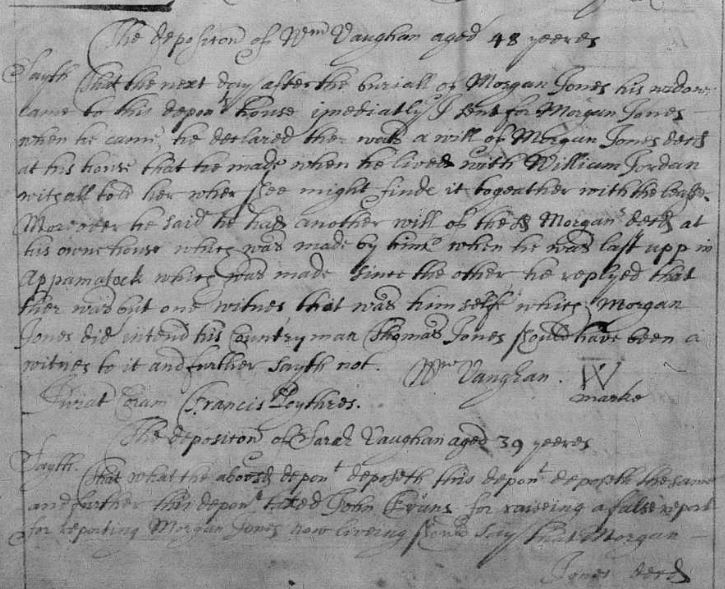 The deposition of Wm Vaughan aged 48 yeeres
Sayth That the next day after the buriall of Morgan Jones his widow
came to this depont house imediatly I sent for Morgan Jones
when he came, he declared ther was a will of Morgan Jones decd
at his house that he made when he lived with William Jordan
withall told her wher shee might finde it togeather with the
Moreover he said he had another will of the sd Morgans decd at
his owne house which was made by him when he was last upp in
Appamatock which was made since the other he replyed that
ther was but one witnes that was himself which Morgan
Jones did intend his Countryman Thomas Jones should have been a
witnes to it and further sayth not. Wm Vaughan. W
marke
Jurat Coram Francis Poythres.
The deposition of Sarah Vaughan aged 39 yeeres
Sayth. That what the abovesd depont deposeth this depont deposeth the same
and further this depont taxed John Evans for raiseing a false report
for reporting Morgan Jones now liveing should say that Morgan
Jones decd